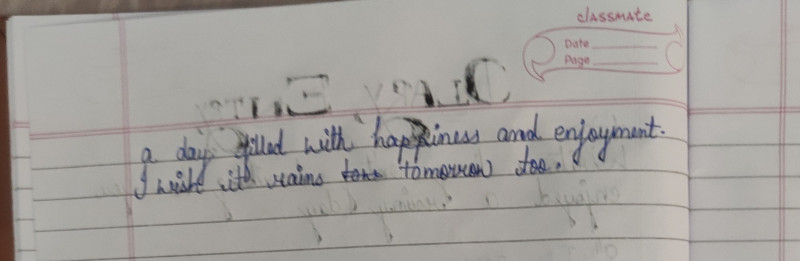 classmate
Date
Page
a day filled with happiness and enjoyment.
I wish it rains tom tomorrow too.